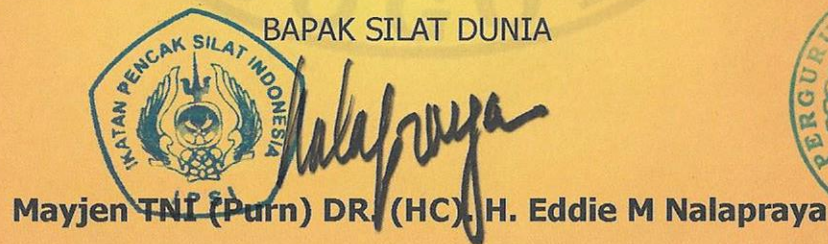 BAPAK SILAT DUNIA
IKATAN PENCAK SILAT INDONESIA
IPSI
Nalapraya
PERGURU
Mayjen TNI (Purn) DR. (HC). H. Eddie M Nalapraya